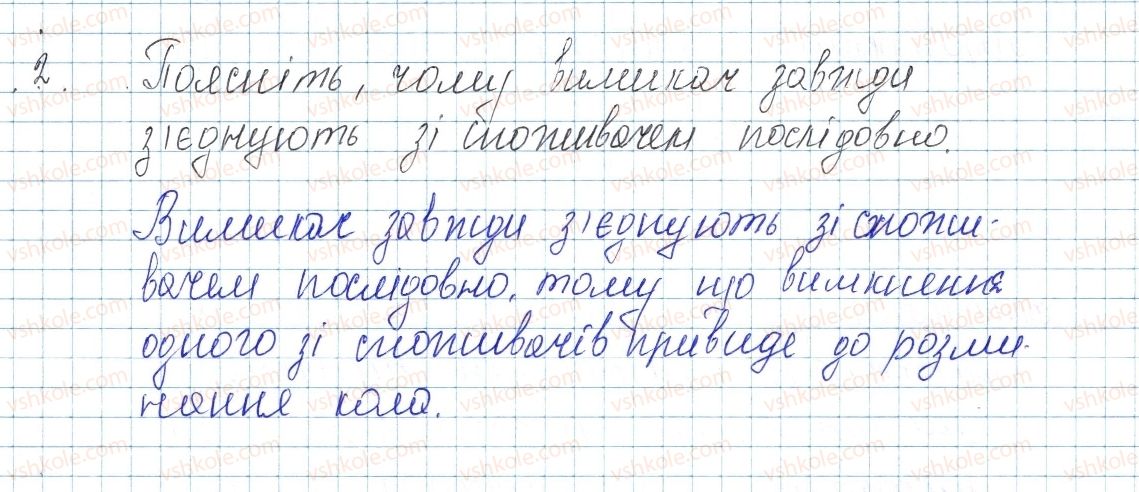 2. Поясніть, чому вимикач завжди
з'єднують зі споживачем послідовно.
Вимикач завжди з'єднують зі спожи-
вачем послідовно, тому що вимкнення
одного зі споживачів призведе до розми-
кання кола.